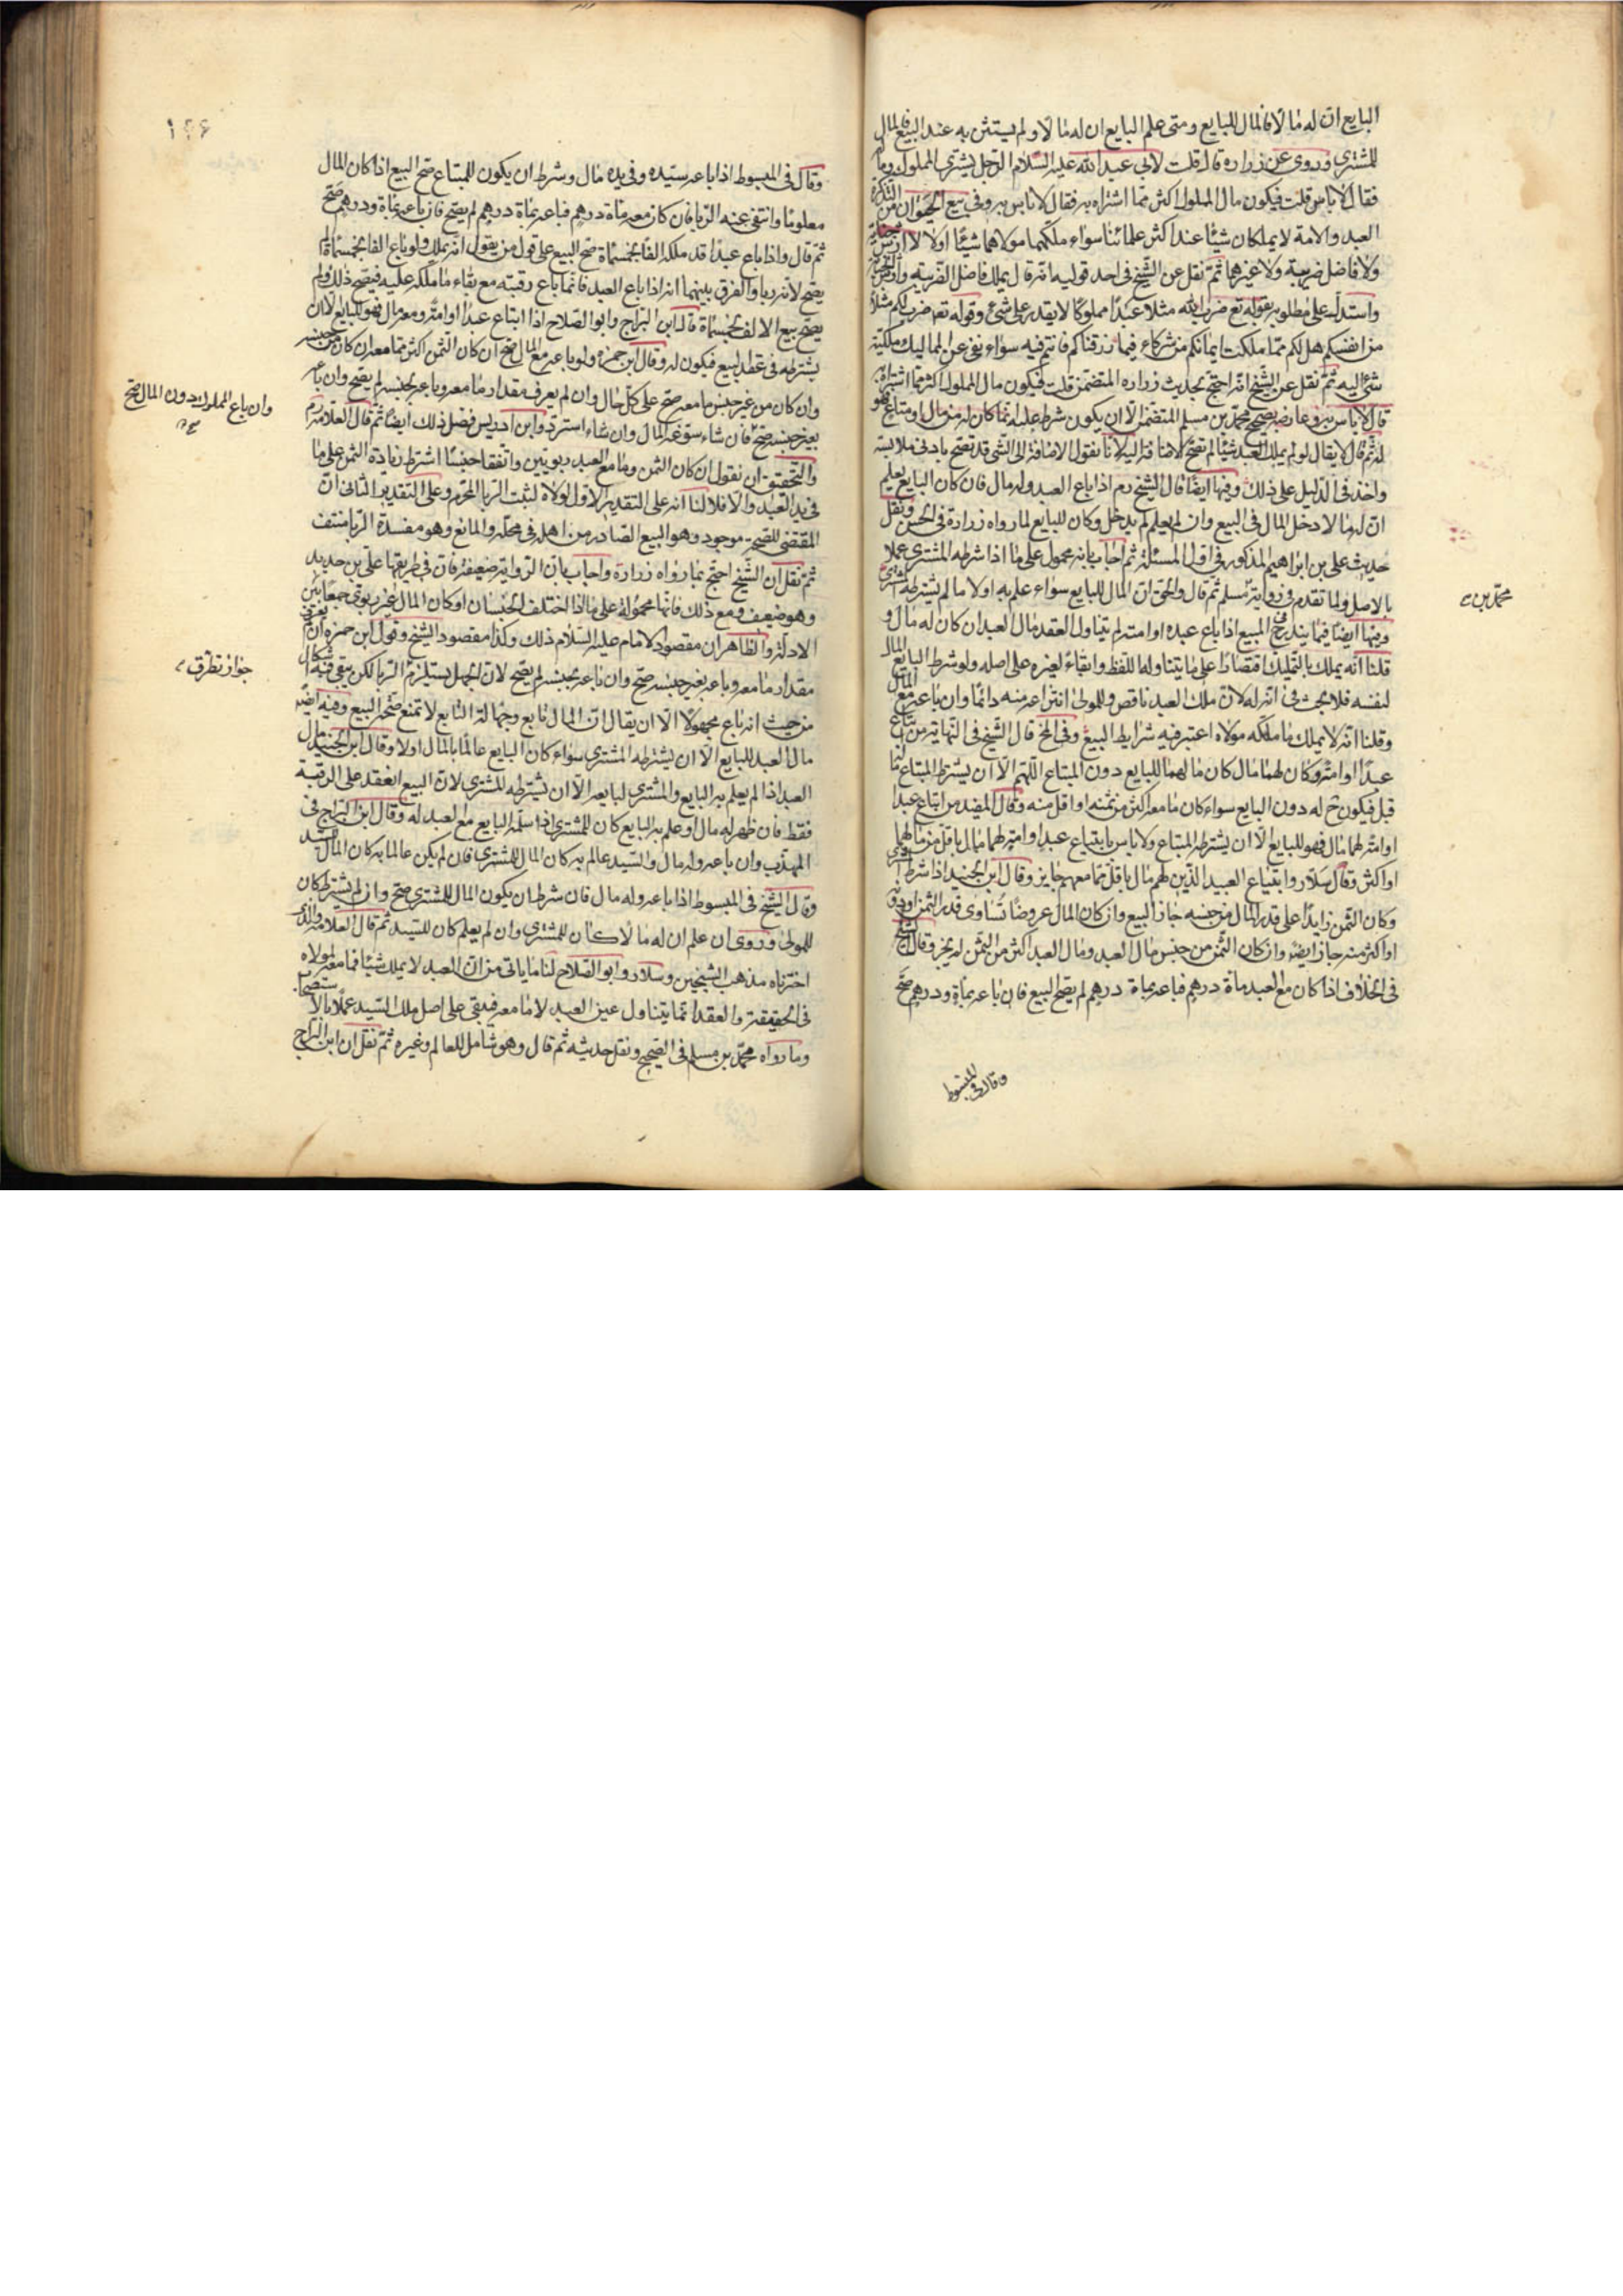 البايع ان له مالا فالمال للبايع ومتى علم البايع ان له مالا ولم يستثن به عند البيع فالمال
للمشترى وروى عن زراره قال قلت لابى عبد الله عليه السلام الرجل يشترى المملوك وماله
فقال لا باس قلت فيكون مال المملوك اكثر مما اشتراه به فقال لا باس به وفى بيع الحيوان من التذكرة
العبد والامة لا يملكان شيئا عند اكثر علمائنا سواء ملكهما مولاهما شيئا اولا لا ارش جناية
ولا فاضل ضريبة ولا غيرهما ثم نقل عن الشيخ فى احد قوليه انه قال يملك فاضل الضريبة وارش الجناية
واستدل على مطلوبه بقوله تع ضرب الله مثلا عبدا مملوكا لا يقدر على شئ وقوله تعه ضرب لكم مثلا
من انفسكم هل لكم مما ملكت ايمانكم من شركاء فيما رزقناكم فانتم فيه سواء نفى عن المماليك ملكية
شئ اليه ثم نقل عن الشيخ انه احتج بحديث زراره المتضمن قلت فيكون مال المملوك اكثر مما اشتراه به
قال لا باس به وعارضه بصحيح محمد بن مسلم المتضمن الا ان يكون شرط عليه انما كان له من مال او متاع فهو
له ثم قال لا يقال لو لم يملك العبد شيئا لم تصح الاضافة اليه لانا نقول الاضافة الى الشئ قد تصح بادنى ملابسة
واخذ فى الدليل على ذلك وفيها ايضا قال الشيخ ره اذا باع العبد وله مال فان كان البايع يعلم
ان لهما لا دخل المال فى البيع وان لم يعلم لم يدخل وكان للبايع لما رواه زرارة فى الحسن ونقل
حديث على بن ابراهيم المذكور فى اول المسئلة ثم اجاب بانه محمول على ما اذا شرطه المشترى عملا
بالاصل ولما تقدم فى رواية مسلم ثم قال والحق ان المال للبايع سواء علم به اولا ما لم يشترطه المشترى
محمد بن
وفيها ايضا فيما يندرج فى المبيع اذا باع عبده او امته لم يتناول العقد مال العبد ان كان له مال و
قلنا انه يملك بالتمليك اقتصارا على ما يتناوله اللفظ وابقاء لغيره على اصله ولو شرط البايع المال
لنفسه فلا بحث فى انه له لان ملك العبد ناقص وللمولى انتزاعه منه دائما وان باعه مع المال
وقلنا انه لا يملك ما ملكه مولاه اعتبر فيه شرايط البيع وفى المخ قال الشيخ فى النهاية من ابتاع
عبدا او امة وكان لهما مال كان مالهما للبايع دون المبتاع اللهم الا ان يشترط المبتاع مالهما
قبل فيكون ح له دون البايع سواء كان ما معه اكثر من ثمنه او اقل منه وقال المفيد من ابتاع عبدا
او امة لهما مال فهو للبايع الا ان يشترطه المبتاع ولا باس بابتياع عبد او امة لهما مال باقل من مالهما
او اكثر وقال سلار وابتياع العبيد الذين لهم مال باقل مما معهم جايز وقال ابن الجنيد اذا شرط
وكان الثمن زايدا على قدر المال من جنسه جاز البيع وان كان المال عروضا تساوى قدر الثمن او دونه
او اكثر منه جاز ايضه وان كان الثمن من جنس مال العبد ومال العبد اكثر من الثمن لم يجز وقال الشيخ
فى الخلاف اذا كان مع العبد ماة درهم فباعه بماة درهم لم يصح البيع فان باعه بماة ودرهم صح
وقال فى المبسوط
وقال فى المبسوط اذا باعه سيده وفى يده مال وشرط ان يكون للمبتاع صح البيع اذا كان المال
معلوما وانتفى عنه الربا فان كان معه ماة درهم فباعه بماة درهم لم يصح فان باعه بماة ودرهم صح
ثم قال واذا باع عبدا قد ملكه الفا بخمسماة صح البيع على قول من يقول انه يملك ولو باع الفا بخمسماة لم
يصح لانه ربا والفرق بينهما انه اذا باع العبد فانما باع رقبته مع بقاء ما ملكه عليه فيصح ذلك ولم
يصح بيع الالف بخمسماة قال ابن البراج وابو الصلاح اذا ابتاع عبدا او امة ومعه مال فهو للبايع الا ان
يشترطه فى عقد البيع فيكون له وقال ابن حمزه ولو باعه مع المال صح ان كان الثمن اكثر مما معه ان كان من جنسه
وان كان من غير جنس ما معه صح على كل حال وان لم يعرف مقدار ما معه وباعه بجنسه لم يصح وان باعه
وان باع المملوك دون المال صح
بغير جنسه صح فان شاء سوغه المال وان شاء استرد وابن ادريس فصل ذلك ايضا ثم قال العلامة ره
والتحقيق ان نقول ان كان الثمن وما مع العبد ربويين واتفقا جنسا اشترط زيادة الثمن على ما
فى يد العبد والا فلا لنا انه على التقدير الاول لولاه لثبت الربا المحرم وعلى التقدير الثانى ان
المقتضى للصحة موجود وهو البيع الصادر من اهله فى محله والمانع وهو مفسدة الربا منتف
ثم نقل ان الشيخ احتج بما رواه زرارة واجاب بان الرواية ضعيفة فان فى طريقها على بن حديد
وهو ضعيف ومع ذلك فانها محمولة على ما اذا اختلف الجنسان او كان المال غير ربوى جمعا بين
الادلة والظاهر ان مقصود الامام عليه السلام ذلك وكذا مقصود الشيخ وقول ابن حمزه ان لم يعرف
جواز تطرق
مقدار ما معه وباعه بغير جنسه صح وان باعه بجنسه لم يصح لان الجهل يستلزم الربا لكن يبقى فيه اشكال
من حيث انه باع مجهولا الا ان يقال ان المال تابع وجهالة التابع لا تمنع صحة البيع وفيه ايضه
مال العبد للبايع الا ان يشترطه المشترى سواء كان البايع عالما بالمال اولا وقال ابن الجنيد مال
العبد اذا لم يعلم به البايع والمشترى لبايعه الا ان يشترطه المشترى لان البيع انعقد على الرقبة
فقط فان ظهر له مال او علم به البايع كان للمشترى اذا سلمه البايع مع العبد له وقال ابن البراج فى
المهذب وان باعه وله مال والسيد عالم به كان المال للمشترى فان لم يكن عالما به كان المال للسيد
وقال الشيخ فى المبسوط اذا باعه وله مال فان شرط ان يكون المال للمشترى صح وان لم يشترط كان
للمولى وروى ان علم ان له مالا كان للمشترى وان لم يعلم كان للسيد ثم قال العلامة والذى
اخترناه مذهب الشيخين وسلار وابو الصلاح لنا ما ياتى من ان العبد لا يملك شيئا فما معه لمولاه
فى الحقيقة والعقد انما يتناول عين العبد لا ما معه فيبقى على اصل ملك السيد عملا بالاستصحاب
وما رواه محمد بن مسلم فى الصحيح ونقل حديثه ثم قال وهو شامل للعالم وغيره ثم نقل ان ابن البراج